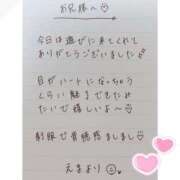 お兄様へ♡
今日は遊びに来てくれて
ありがとうございました
目がハートになっちゃう
くらい魅
たいで嬉しいよ〜♡
制服で背徳感ましまし♡
えまより